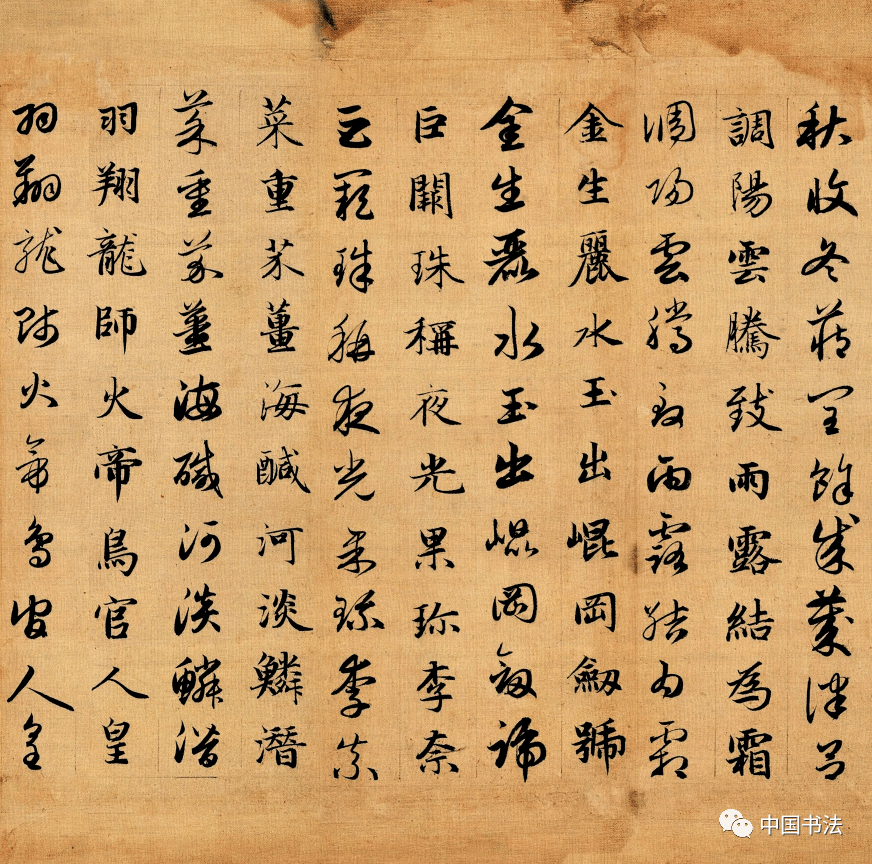 秋收冬藏閏餘成歲律呂
調陽雲騰致雨露結為霜
調陽雲騰致雨露結為霜
金生麗水玉出崐岡劒號
金生麗水玉出崐岡劒號
巨闕珠稱夜光果珎李柰
巨闕珠稱夜光果珎李柰
菜重芥薑海醎河淡鱗潛
菜重芥薑海醎河淡鱗潛
羽翔龍師火帝鳥官人皇
羽翔龍師火帝鳥官人皇
中国书法